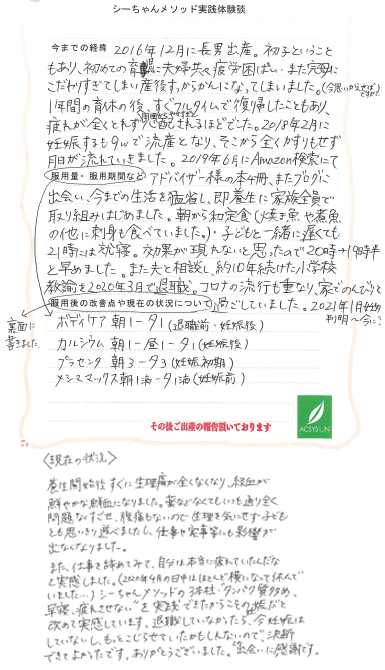 シーちゃんメソッド実践体験談
今までの経緯 2016年12月に長男出産。初子ということ
もあり、初めての育児に夫婦共々疲労困ぱい…また完母に
こだわりすぎてしまい産後すっからかんになってしまいました。(今思いかえせば)ですが
1年間の育休の後、すぐフルタイムで復帰したこともあり、
疲れが全くとれず心配されるほどでした。2018年2月に
妊娠するも9wで流産となり、そこから全くかすりもせず
月日が流れていきました。2019年6月にAmazon検索にて
服用量・服用期間など アドバイザー様の本4冊、またブログに
出会い、今までの生活を猛省し、即養生に家族全員で
取り組みはじめました。朝から和定食(焼き魚や煮魚
の他に刺身も食べていました。)・子どもと一緒に遅くても
21時には就寝。効果が現れないと思ったので20時→19時半
と早めました。また夫と相談し、約10年続けた小学校
教諭を2020年3月で退職。コロナの流行も重なり、家でのんびりと
服用後の改善点や現在の状況について 過ごしていました。2021年1月妊娠
判明〜今に
裏面に
書きました
ボディケア 朝1-夕1(退職前・妊娠後)
カルシウム 朝1-昼1-夕1(妊娠後)
プラセンタ 朝3-夕3(妊娠初期)
メンズマックス朝1滴-夕1滴(妊娠前)
その後ご出産の報告頂いております
ACSYSUN
〈現在の状況〉
養生開始後すぐに生理痛が全くなくなり、経血が
鮮やかな鮮血になりました。薬などなくてもいつも通り全く
問題なくすごせ、腹痛もないので生理を気にせず子ども
とも思いきり遊べましたし、仕事や家事等にも影響が
出なくなりました。
また、仕事を辞めてみて、自分は本当に疲れていたんだな
と実感しました。(2020年4月の日中はほとんど横になって休んで
いました…)シーちゃんメソッドの3本柱"タンパク質多め、
早寝、疲れさせない"を実践できたからこその妊娠だと
改めて実感しています。退職していなかったら、今妊娠は
していないし、もっとこじらせていたかもしれないので、決断
できてよかったです。ありがとうございました。"出会い"に感謝です。